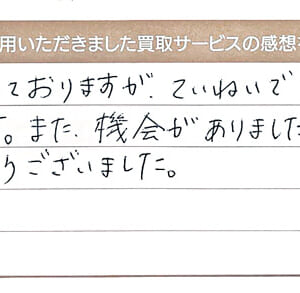 用いただきました買取サービスの感想
ておりますが、ていねいで
。また、機会がありました
ございました。